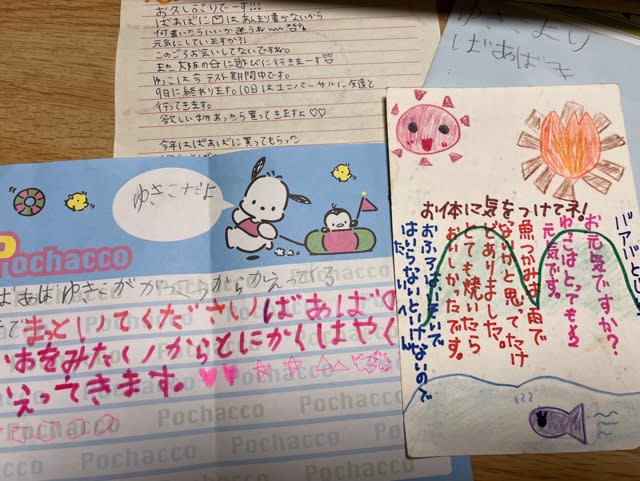 お久しぶりでーす!!!
ばあばに✉はあんまり書かないから
何書いたらいいか迷うね〜
元気にしていますか?!
このごろお会いしてないですね。
また大阪の母に遊びに行きまーす
ゆっこは今テスト期間中です。
9日に終わります。10日はユニバーサルに友達と
行ってきます。
欲しい物あったら買ってきますよ♡♡
今年はばあばに買ってもらった
ゆきこより
ばあばへ
ゆきこだよ
Pochacco
ばあばゆきこががっこうからかえってくる
まっといてくださいばあばの
かおをみたいからとにかくはやく
かえってきます。
Pochacco Pochacco
Pochacco
Pochacco
お体に気をつけてネ!
お元気ですか?
ゆきこはとっても
元気です。
魚つかみは、雨で
なのかと思ってたけ
どありました。
とても焼いたら
おいしかったです。
おふろは
はいらないといけないので
たいへん